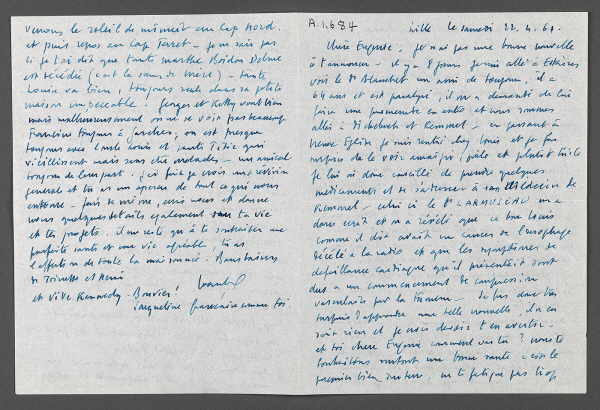 verrons le soleil de minuit au Cap Nord.
et puis repos au Cap Ferret - je ne sais pas
si je t'ai dit que tante Marthe Boidin
est décédée (c'est la sœur de Mère) - tante
Louise va bien, toujours seule dans sa petite
maison impeccable. Georges et Ketty vont bien
mais malheureusement on ne se voit pas beaucoup
Francine toujours à Garches, on est presque
toujours avec l'oncle Louis et tante Titie qui
vieillissent mais sans être malades - un amical
toujours de leur part. J'ai fait je crois une révision
générale et tu as un aperçu de tout ce qui nous
entoure - fais de même, écris nous et donne
nous quelques détails également sur ta vie
et tes projets. il me reste qu'à te souhaiter une
parfaite santé et une vie agréable, tu as
l'affection de toute la maisonnée. Bons baisers
de Toinette et
et vive Kennedy - Bouvier!
Jacqueline française comme toi.
A.1.684
Lille le samedi 22.4.61.
Chère Eugénie - je n'ai pas une bonne nouvelle
à t'annoncer - il y a 8 jours je suis allé à Estaires
voir le Dr Blanchet un ami de toujours, il a
64 ans et est paralysé, il m'a demandé de lui
faire une promenade en auto et nous sommes
allés à Dickebusch et Kemmel - en passant à
Neuve Eglise je suis rentré chez Louis et je fus
surpris de le voir amaigri, pâle et plutôt triste
je lui ai donc conseillé de prendre quelques
médicaments et de s'adresser à son médecin de
Kemmel - celui ci le Dr LAMUSEAU m'a
donc écrit et m'a révélé que ce bon Louis
comme il dit avait un cancer de l'œsophage
décelé à la radio et que les symptômes de
défaillance cardiaque qu'il présentait sont
dus à un commencement de compression
vasculaire par la tumeur - Je fus donc très
surpris d'apprendre une telle nouvelle, il n'en
sait rien et je crois devoir t'en avertir -
et toi chère Eugénie comment vas tu? nous te
souhaitons surtout une bonne santé c'est le
premier bien sur terre, ne te fatigue pas trop